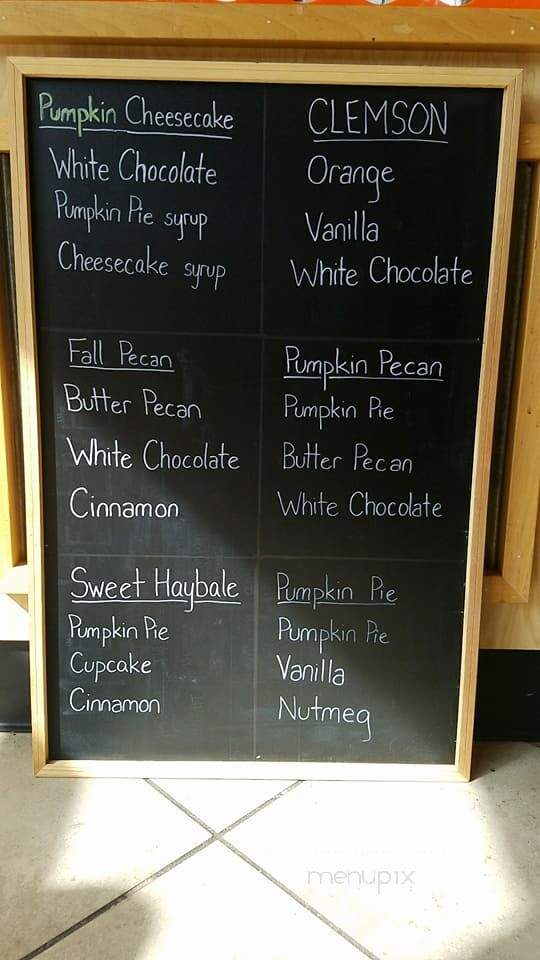 Pumpkin Cheesecake
White Chocolate
Pumpkin Pie syrup
Cheesecake syrup
CLEMSON
Orange
Vanilla
White Chocolate
Fall Pecan
Butter Pecan
White Chocolate
Cinnamon
Pumpkin Pecan
Pumpkin Pie
Butter Pecan
White Chocolate
Sweet Haybale
Pumpkin Pie
Cupcake
Cinnamon
Pumpkin Pie
Pumpkin Pie
Vanilla
Nutmeg
menupix